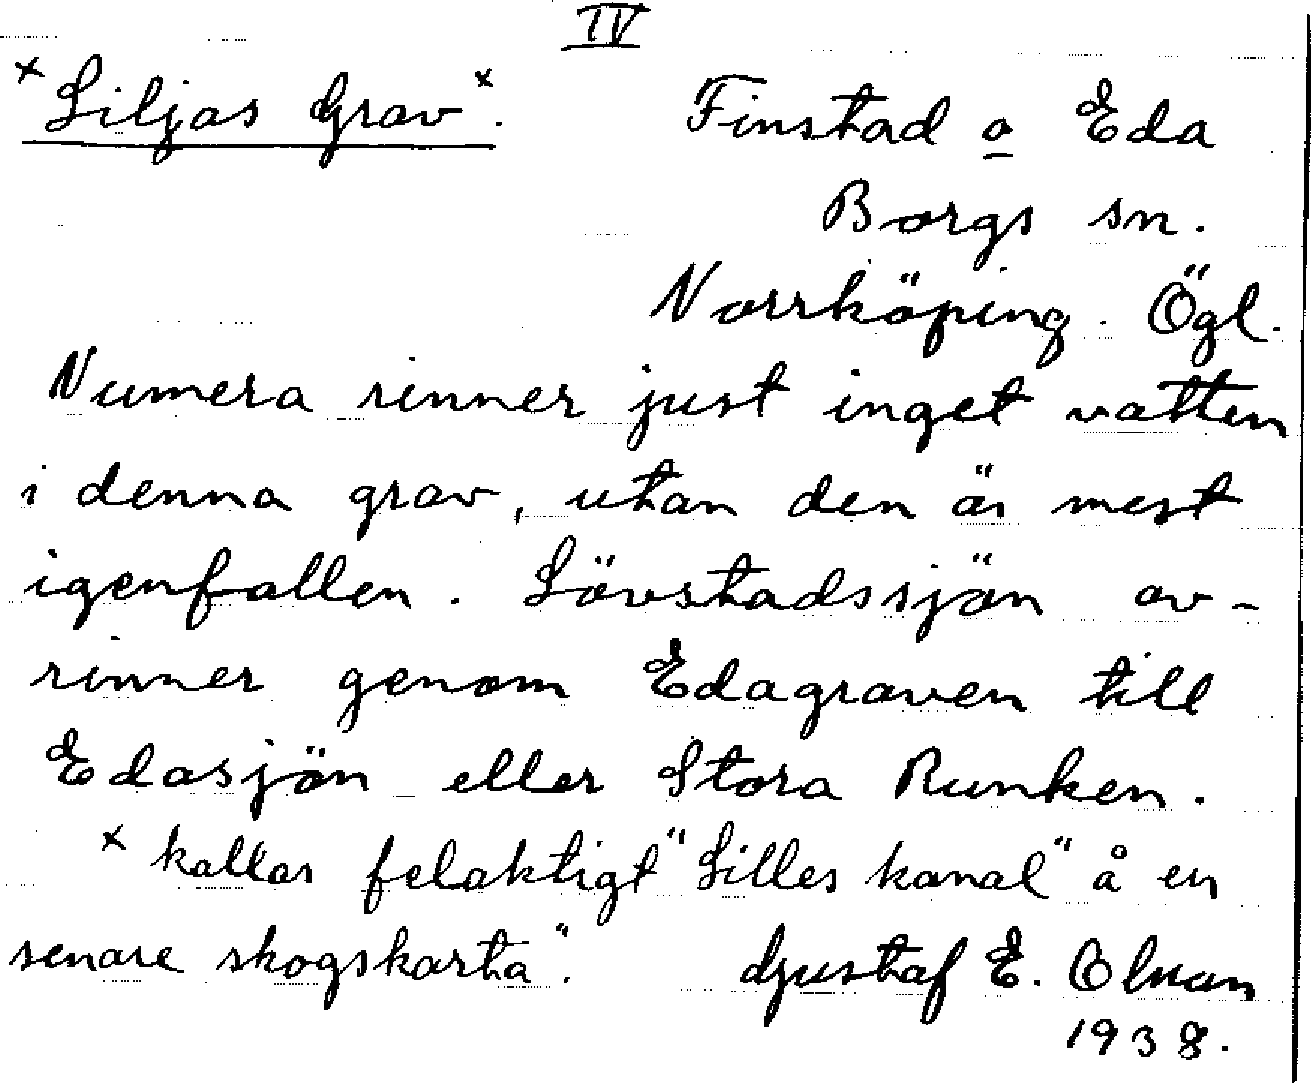 IV
x Liljas Grav x. Finstad o Eda
Borgs sn.
Norrköping. Ögl.
Numera rinner just inget vatten
i denna grav, utan den är mest
igenfallen. Lövstadssjön av-
rinner genom Edagraven till
Edasjön eller Stora Runken.
x kallas felaktigt "Lilles kanal" å en
senare skogskarta". Gustaf E. Olman
1938.